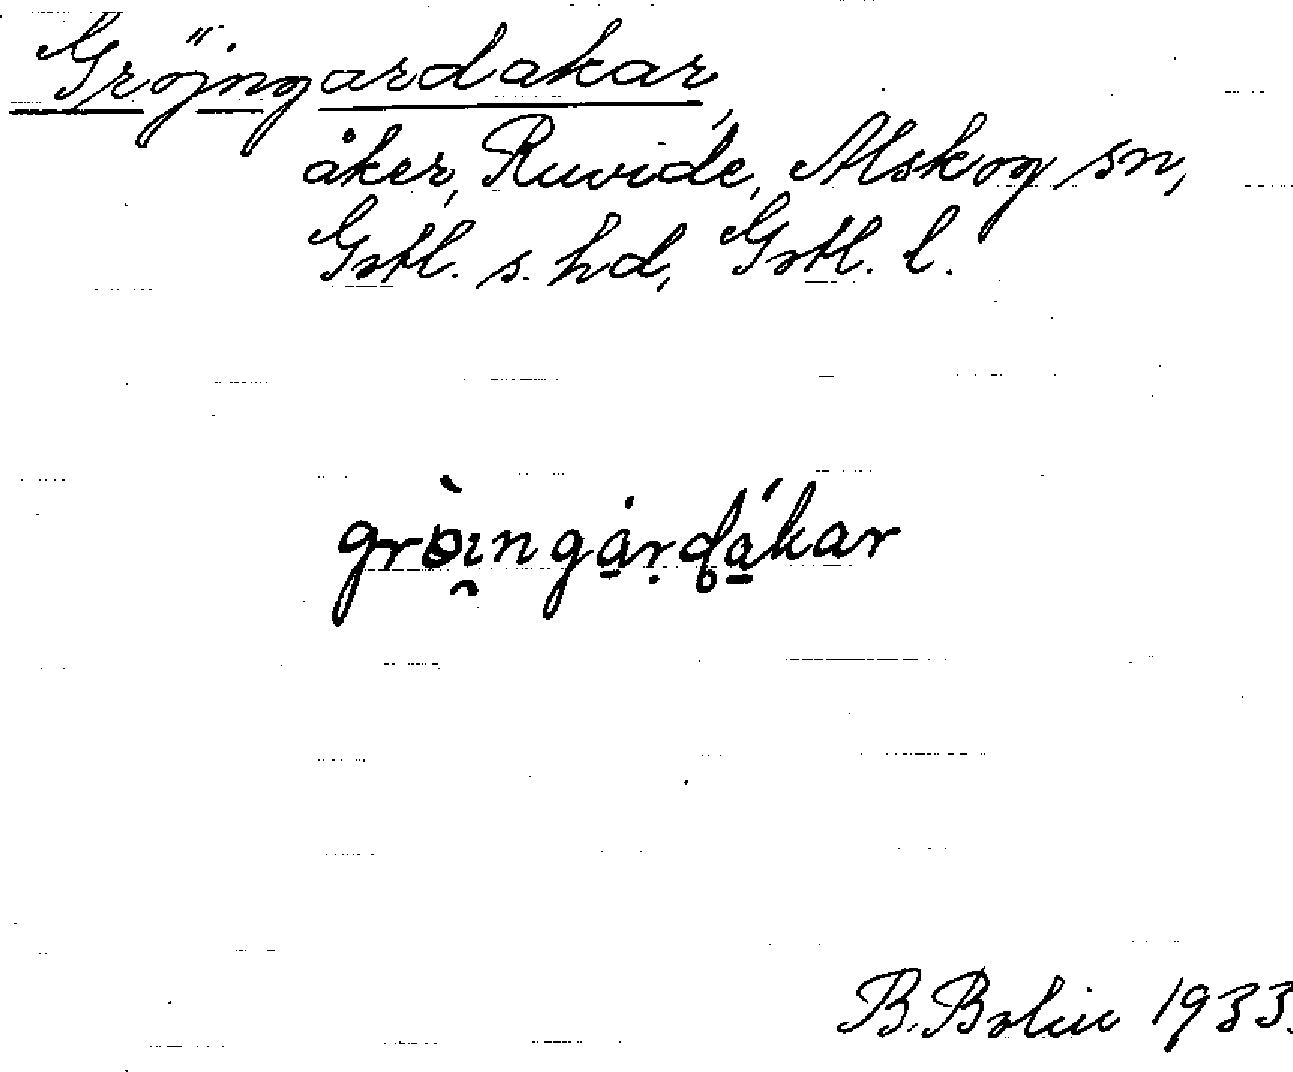 Gröjngardakar,
åker, Ruvide, Alskog sn,
Gotl. s. hd, Gotl. l.
gròi̯ngȧrḍákar
B. Bolin 1933.